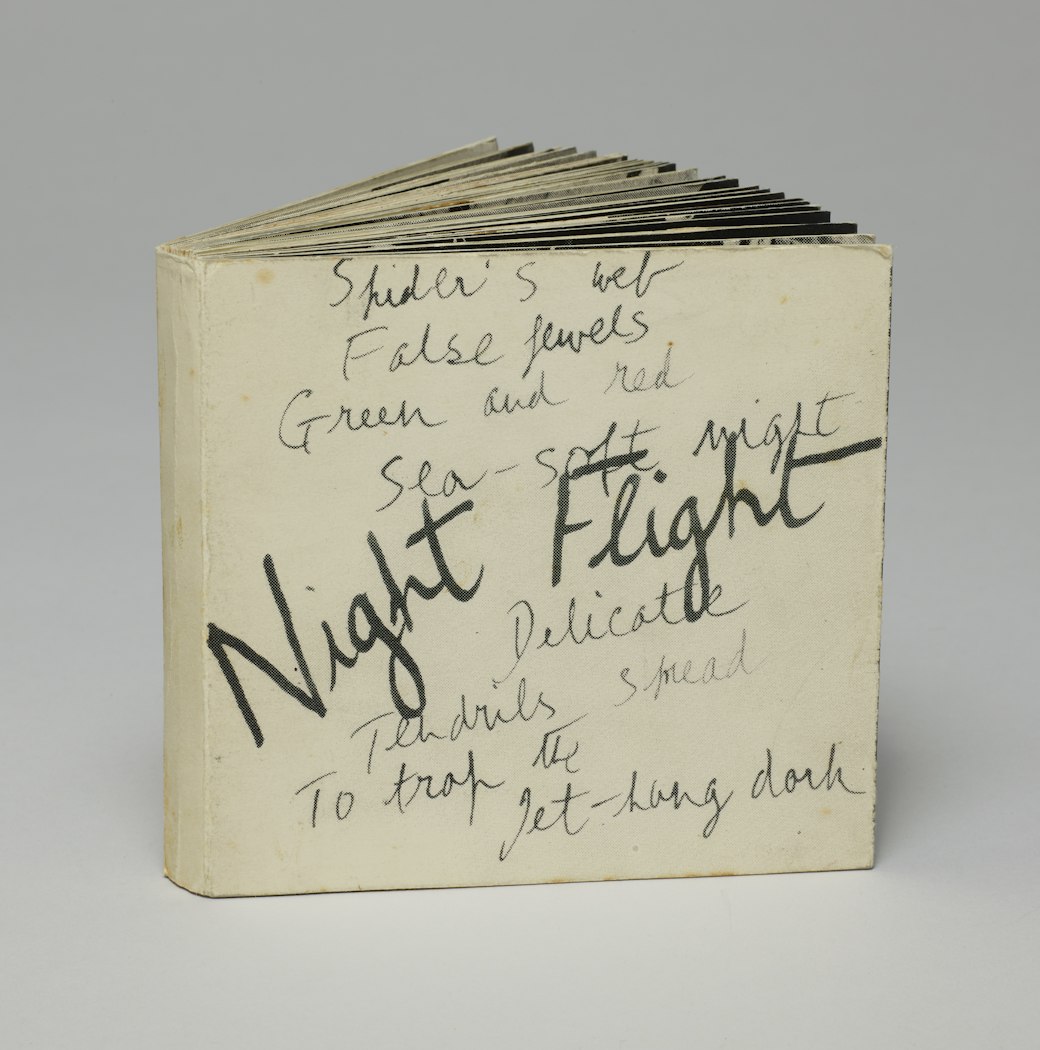 Spider's web
False jewels
Green and red
Sea-soft night
Night Flight
Delicate
Tendrils spread
To trap the
Jet-hung dark